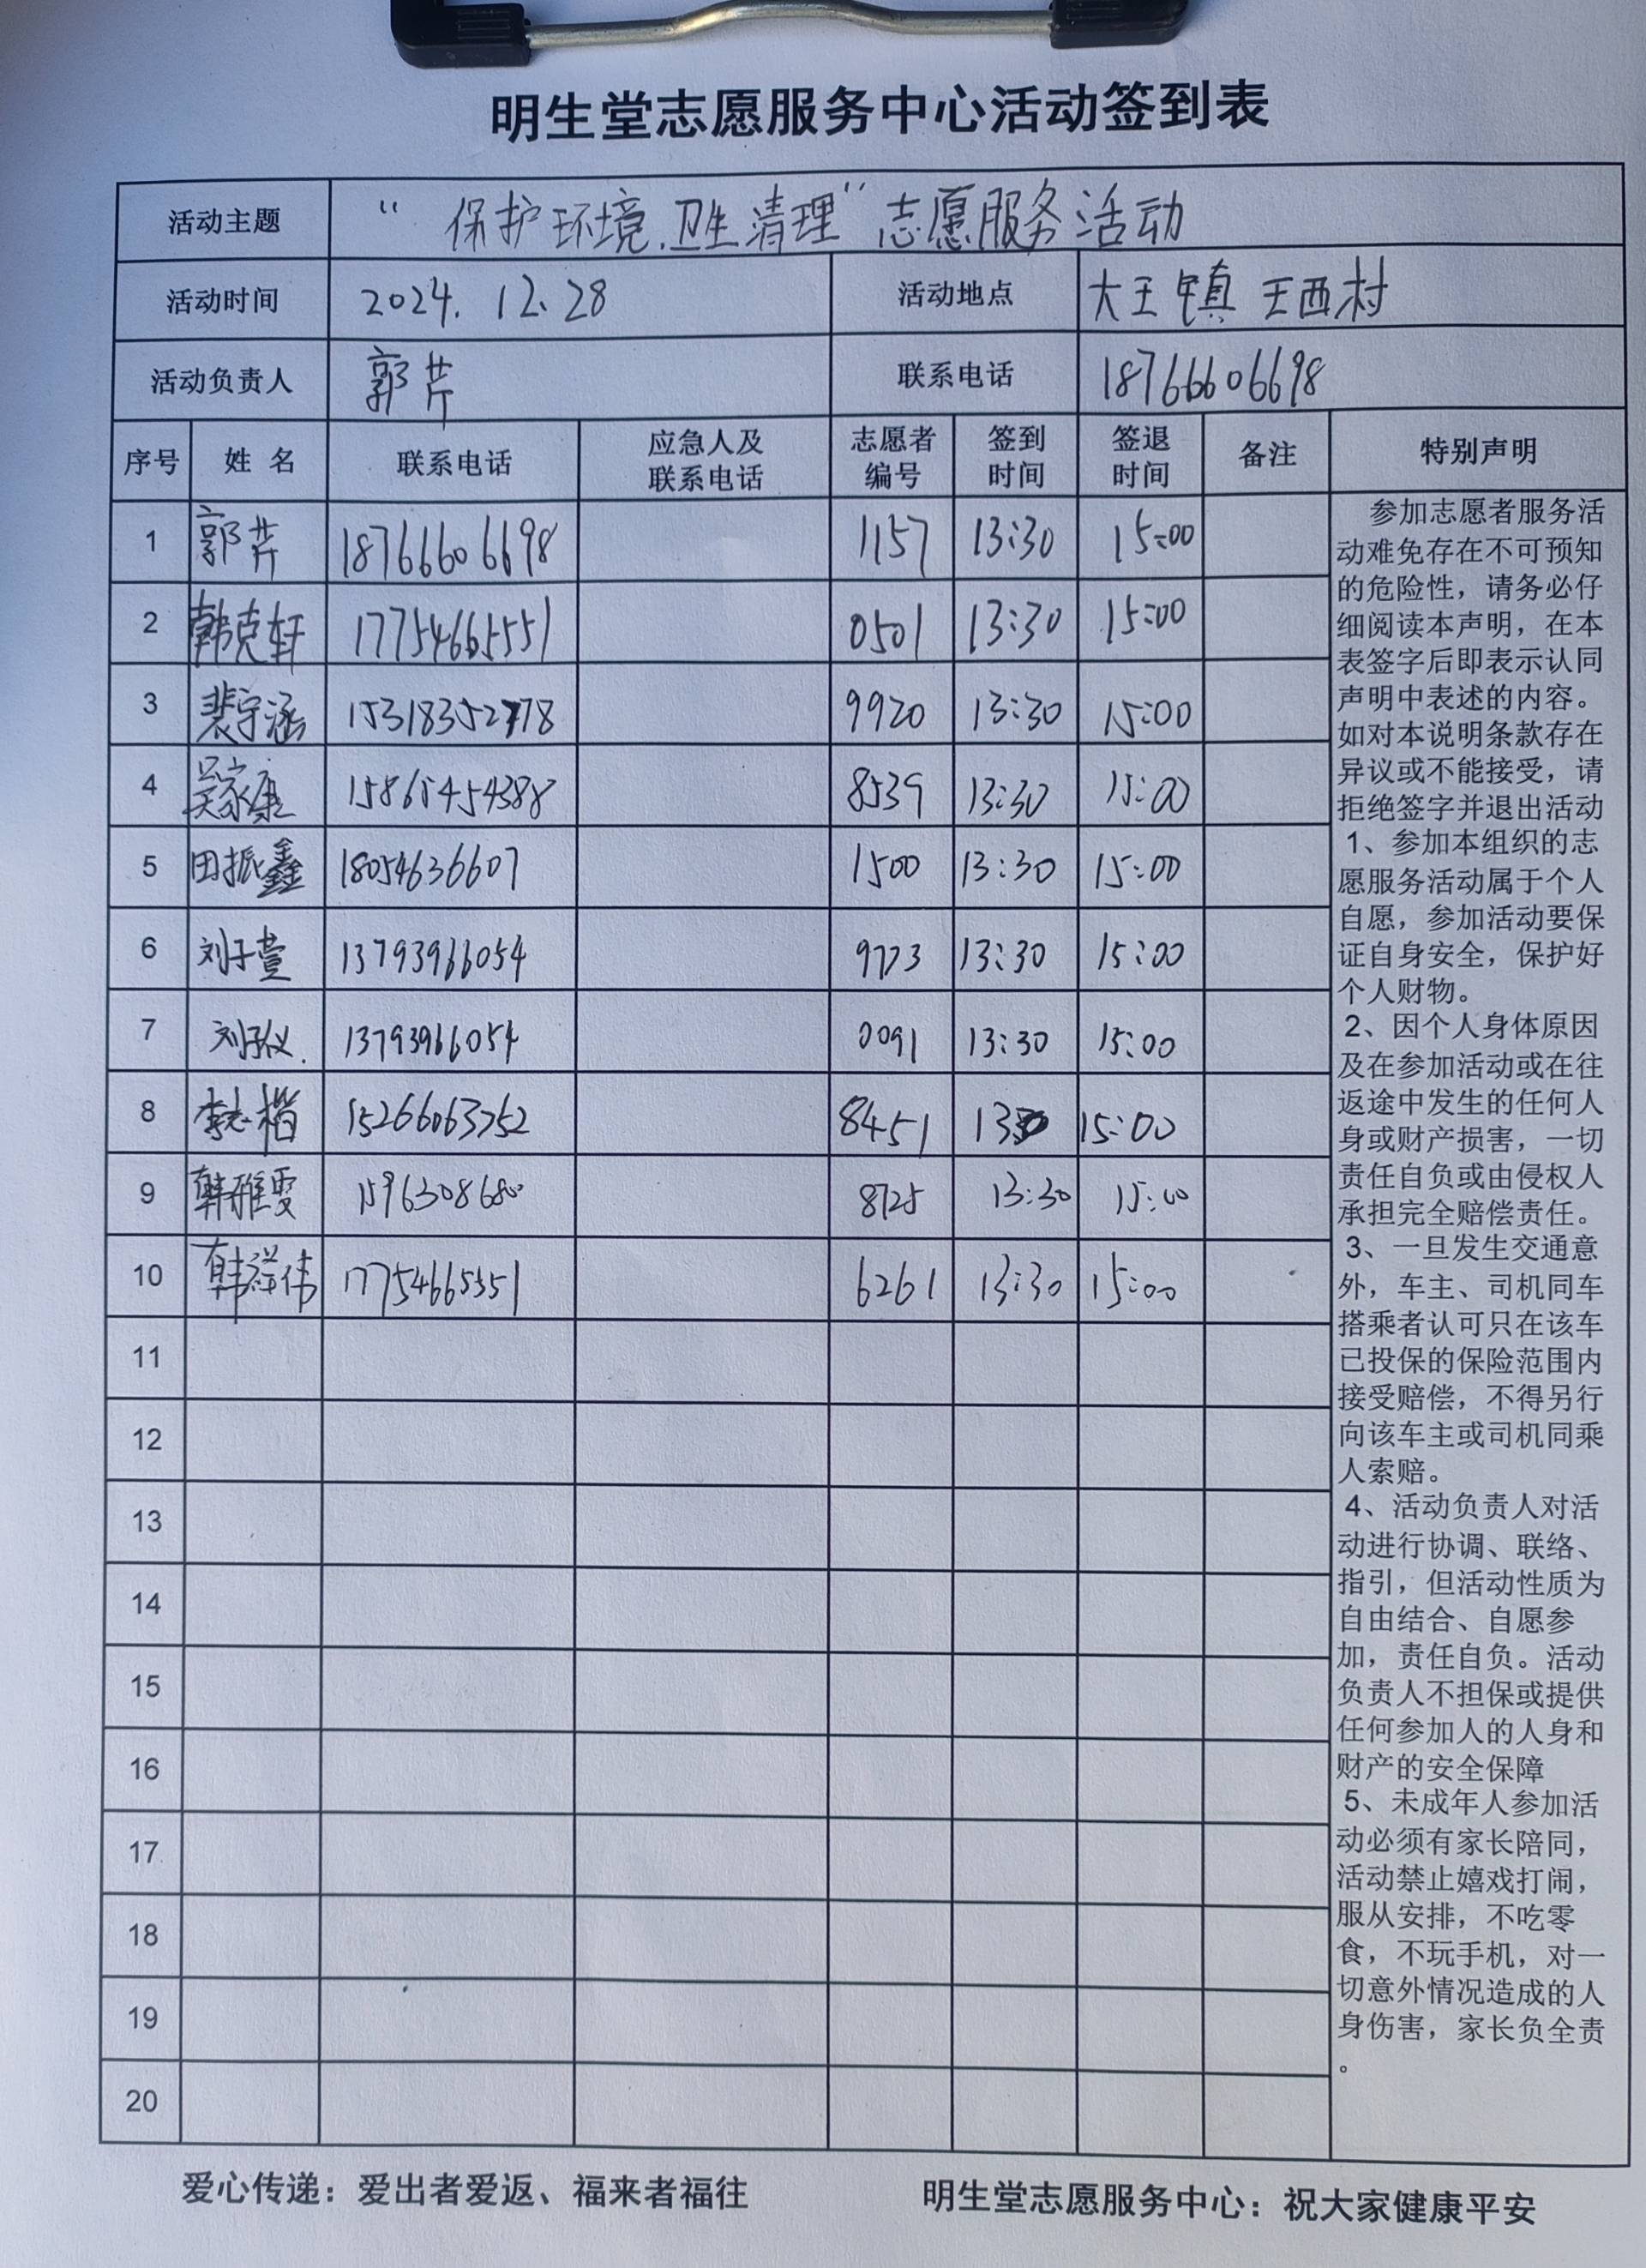 明生堂志愿服务中心活动签到表
活动主题 “保护环境.卫生清理”志愿服务活动
活动时间 2024.12.28 活动地点 大王镇王西村
活动负责人 郭芹 联系电话 18766606698
序号 姓名 联系电话 应急人及联系电话 志愿者编号 签到时间 签退时间 备注 特别声明
1 郭芹 18766606698 1157 13:30 15:00
2 韩克轩 17754665551 0501 13:30 15:00
3 裴宇涵 15318352778 9920 13:30 15:00
4 吴家康 15865454388 8539 13:30 15:00
5 田振鑫 18054636607 1500 13:30 15:00
6 刘子萱 13793966054 9773 13:30 15:00
7 刘子仪. 13793966054 0091 13:30 15:00
8 李志楷 15266063752 8451 1330 15:00
9 韩雅雯 8725 13:30 15:00
10 韩祥伟 6261 13:30 15:00
11
12
13
14
15
16
17
18
19
20
参加志愿者服务活
动难免存在不可预知
的危险性，请务必仔
细阅读本声明，在本
表签字后即表示认同
声明中表述的内容。
如对本说明条款存在
异议或不能接受，请
拒绝签字并退出活动
1、参加本组织的志
愿服务活动属于个人
自愿，参加活动要保
证自身安全，保护好
个人财物。
2、因个人身体原因
及在参加活动或在往
返途中发生的任何人
身或财产损害，一切
责任自负或由侵权人
承担完全赔偿责任。
3、一旦发生交通意
外，车主、司机同车
搭乘者认可只在该车
已投保的保险范围内
接受赔偿，不得另行
向该车主或司机同乘
人索赔。
4、活动负责人对活
动进行协调、联络、
指引，但活动性质为
自由结合、自愿参
加，责任自负。活动
负责人不担保或提供
任何参加人的人身和
财产的安全保障
5、未成年人参加活
动必须有家长陪同，
活动禁止嬉戏打闹，
服从安排，不吃零
食，不玩手机，对一
切意外情况造成的人
身伤害，家长负全责
。
爱心传递：爱出者爱返、福来者福往 明生堂志愿服务中心：祝大家健康平安